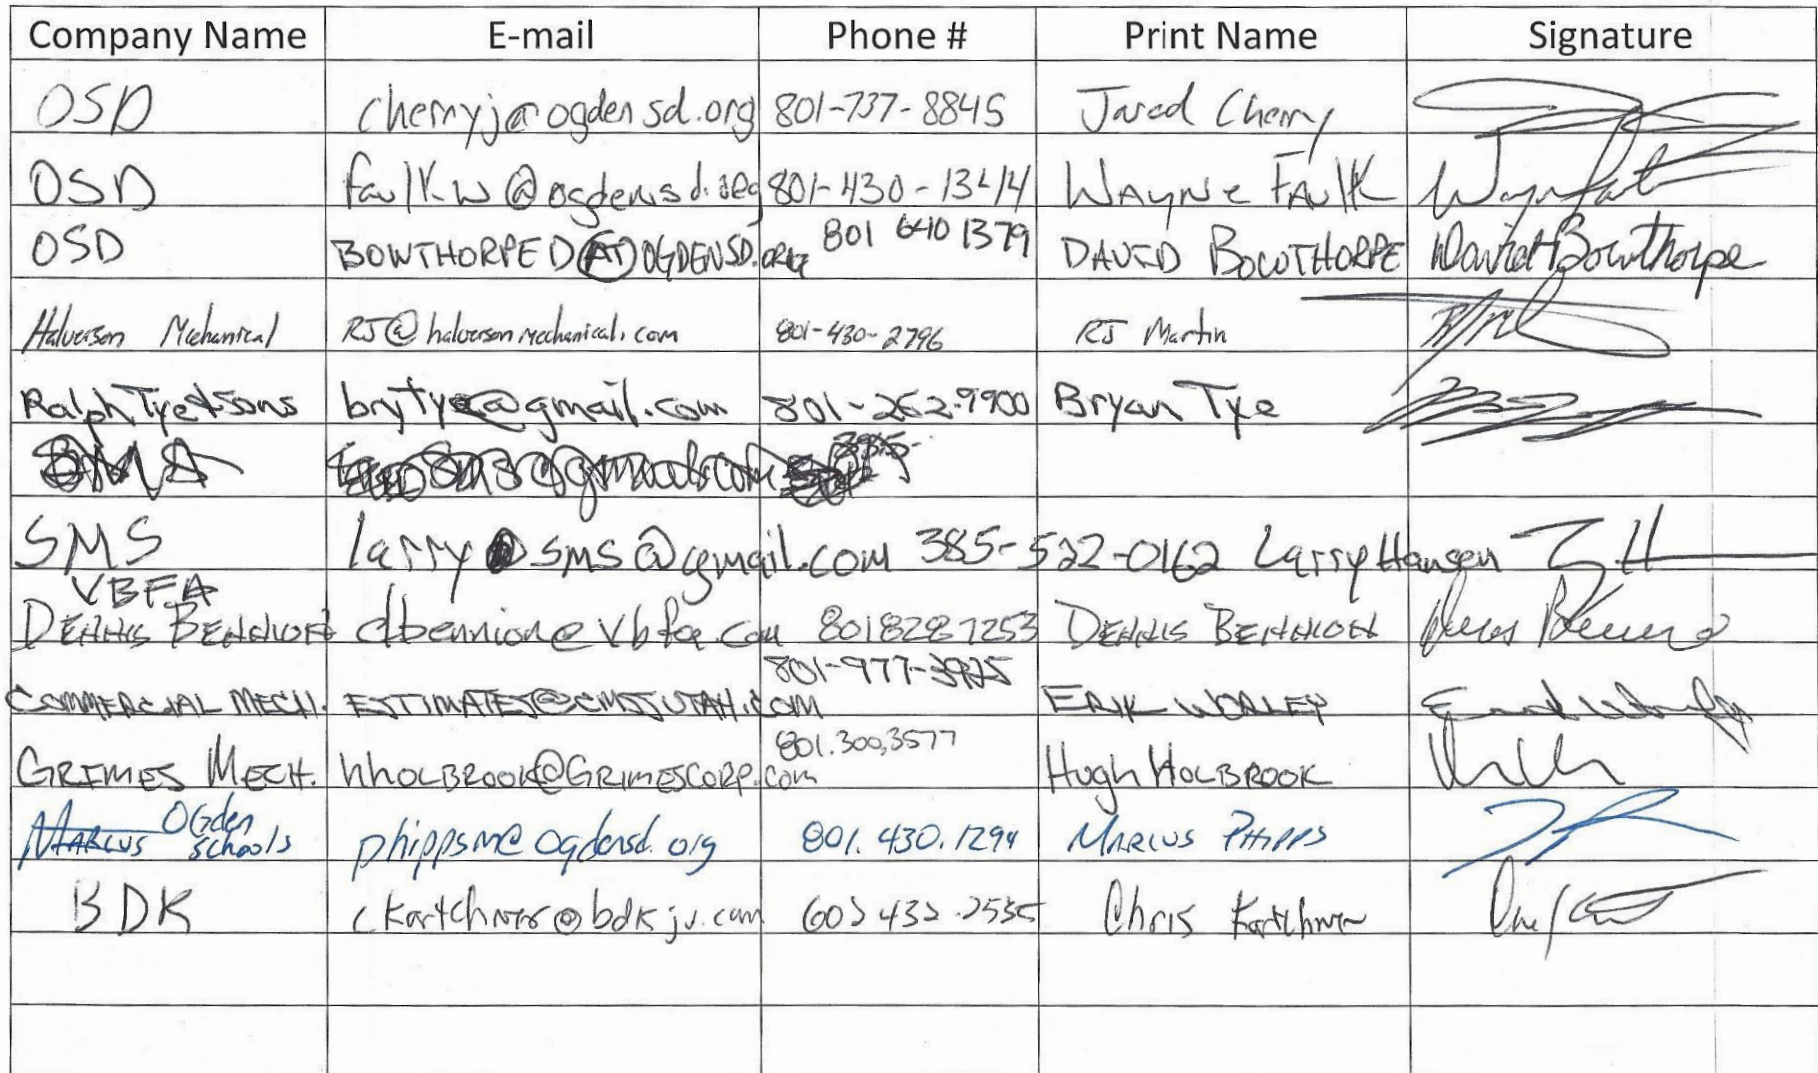 Company Name E-mail Phone # Print Name Signature
OSD cherryj@ogdensd.org 801-737-8845 Jared Cherry
OSD faulkw@ogdensd.org 801-430-1344 WAYNE FAULK
OSD BOWTHORPED@OGDENSD.ORG 801 640 1379 DAVID BOWTHORPE David Bowthorpe
Halverson Mechanical RJ@halversonmechanical.com 801-430-2796 RJ Martin
Ralph Tye & Sons brytye@gmail.com 801-262-9900 Bryan Tye
SMS larrysms@gmail.com 385-522-0162 Larry Hansen
VBFA
DENNIS BENNION dbennion@vbfa.com 8018287253 DENNIS BENNION
801-977-3925
COMMERCIAL MECH. ESTIMATES@CMSSUTAH.COM ERIK WORLEY
801.300.3577
GRIMES MECH. hHOLBROOK@GRIMESCORP.com Hugh HOLBROOK
MARCUS Ogden Schools phippsm@ogdensd.org 801.430.1294 MARCUS PHIPPS
BDK ckartchner@bdkjv.com Chris Kartchner